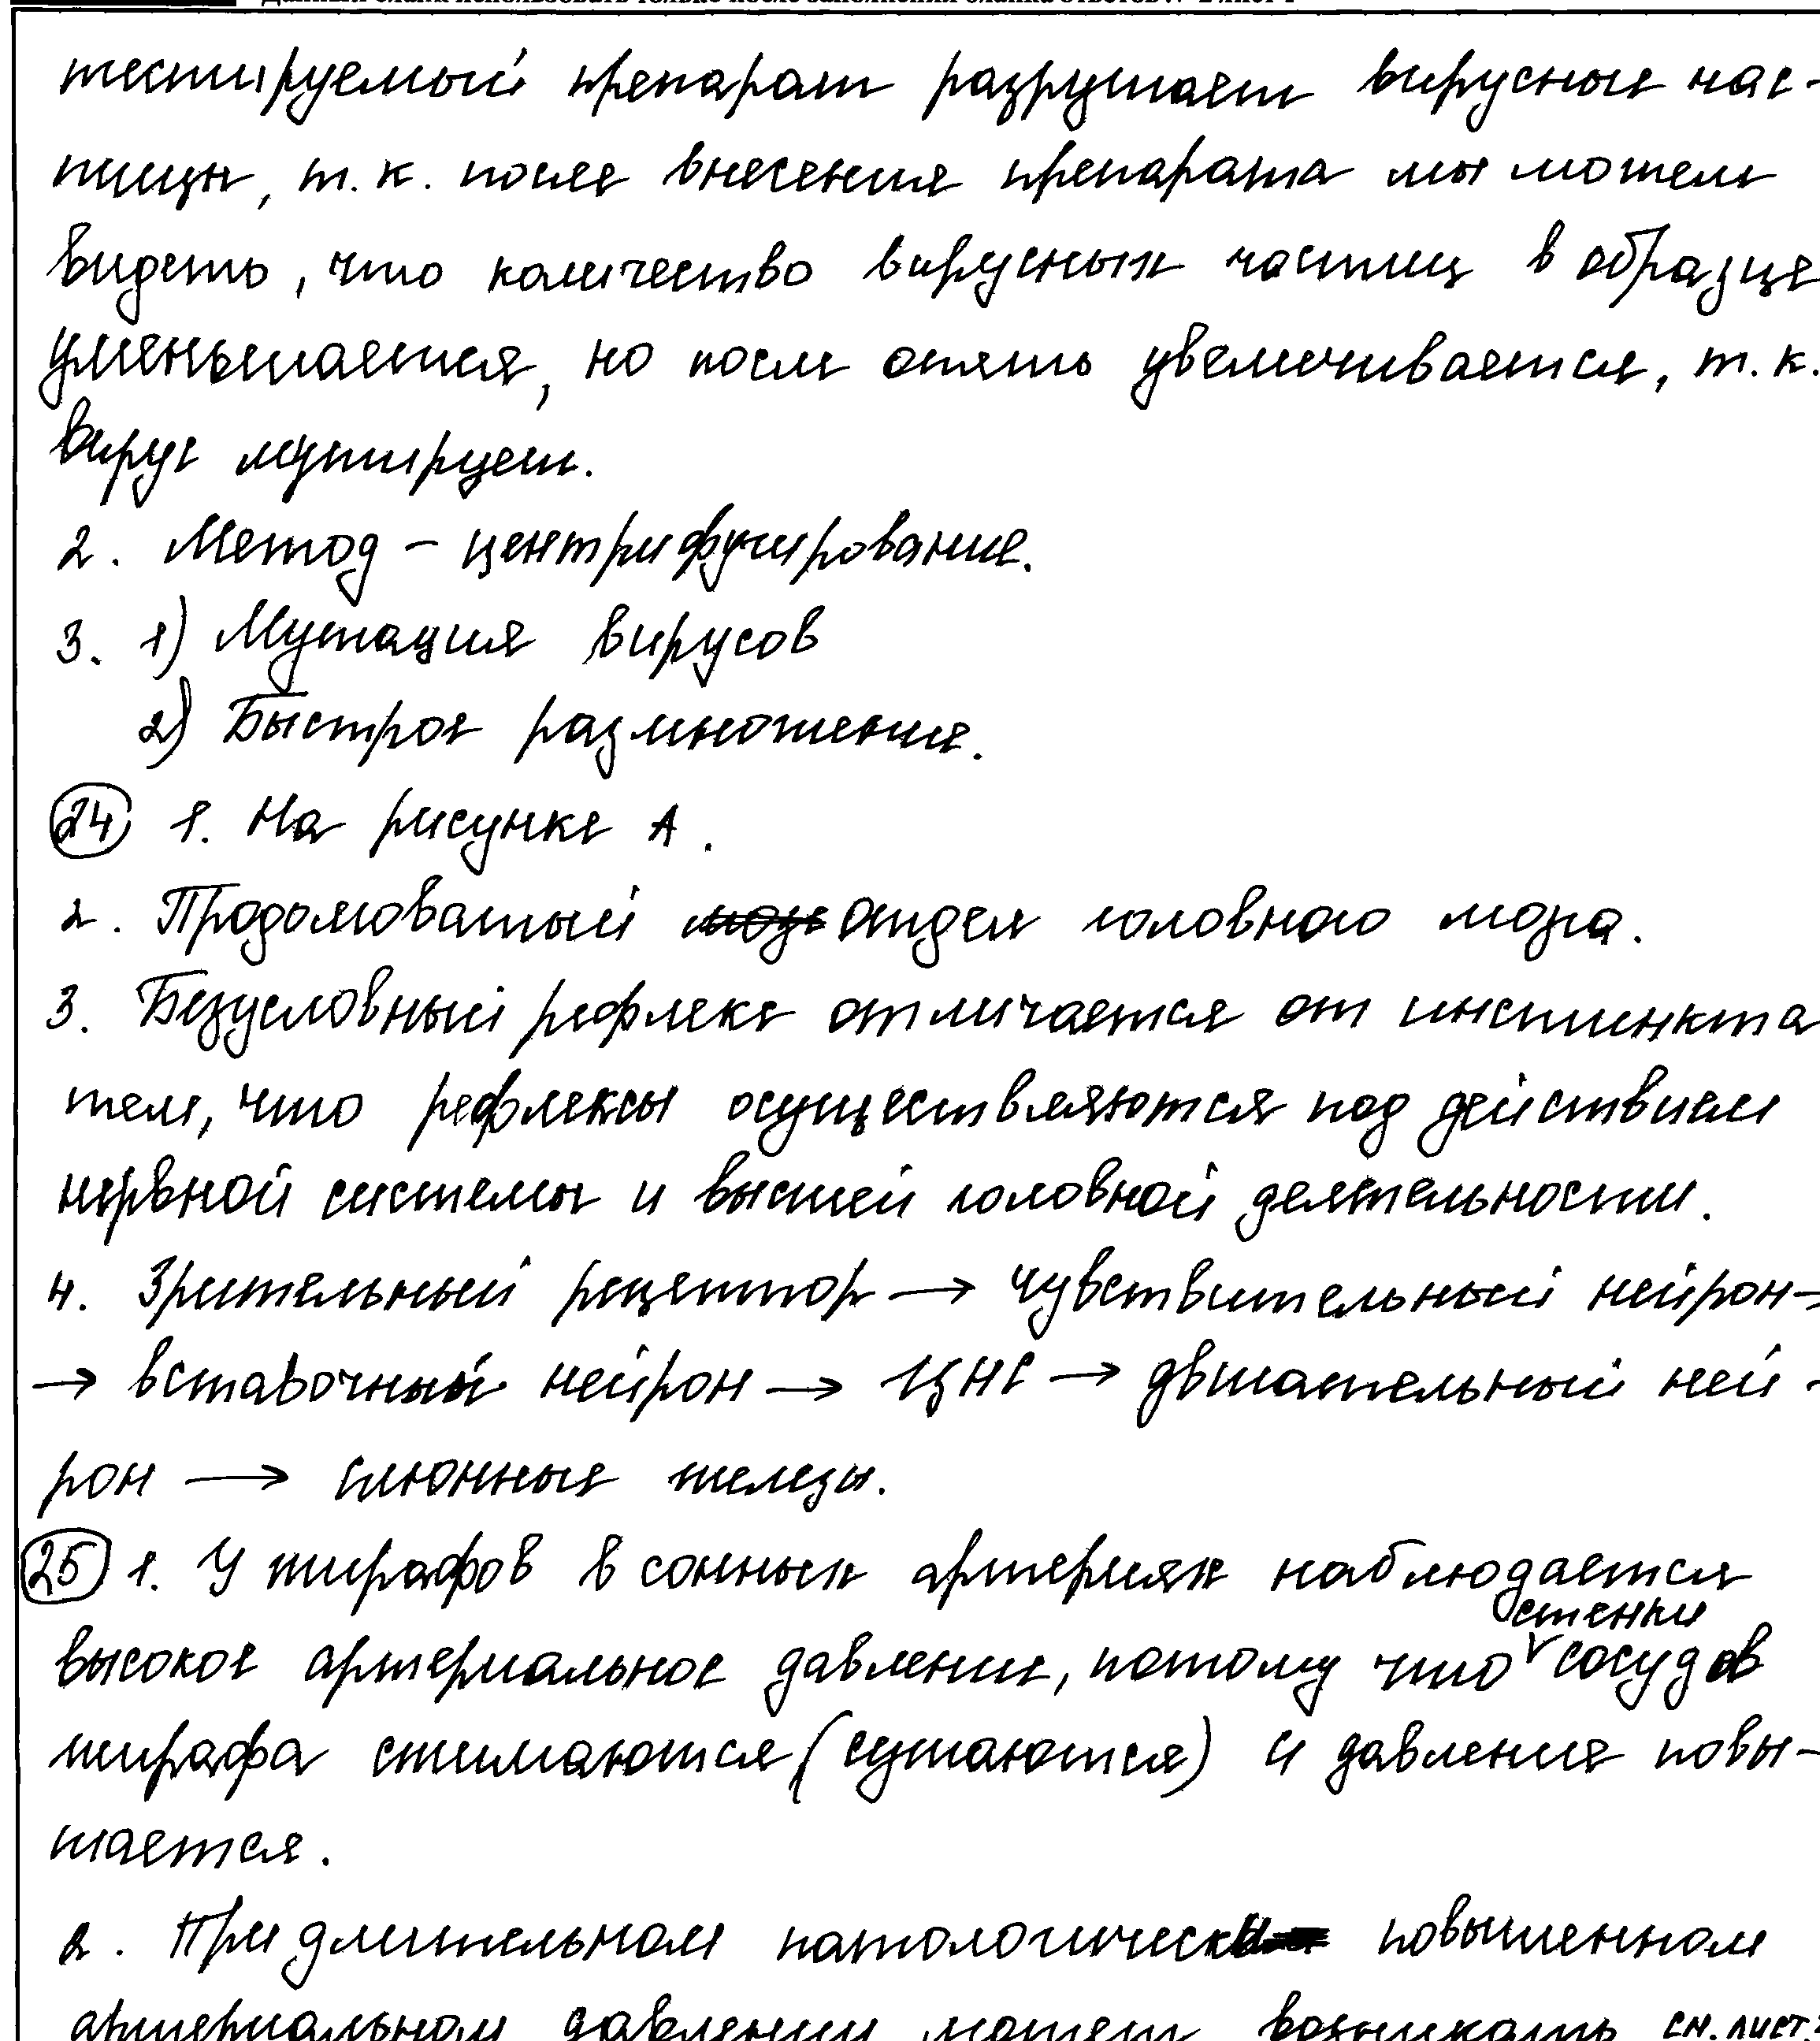 тестируемый препарат разрушает вирусные час-
тицы, т.к. после внесения препарата мы можем
видеть, что количество вирусных частиц в образце
уменьшается, но после опять увеличивается, т.к.
вирус мутирует.
2. Метод – центрифугирование.
3. 1) Мутация вирусов
2) Быстрое размножение.
24 1. На рисунке А.
2. Продолговатый отдел головного мозга.
3. Безусловный рефлекс отличается от инстинкта
тем, что рефлексы осуществляются под действием
нервной системы и высшей головной деятельности.
4. Зрительный рецептор → чувствительный нейрон →
→ вставочный нейрон → ЦНС → двигательный ней-
рон → слюнные железы.
25 1. У жирафов в сонных артериях наблюдается
стенки
высокое артериальное давление, потому что сосудов
жирафа сжимаются (сужаются) и давление повы-
шается.
2. При длительном патологически повышенном
артериальном давлении может возникать см. лист.